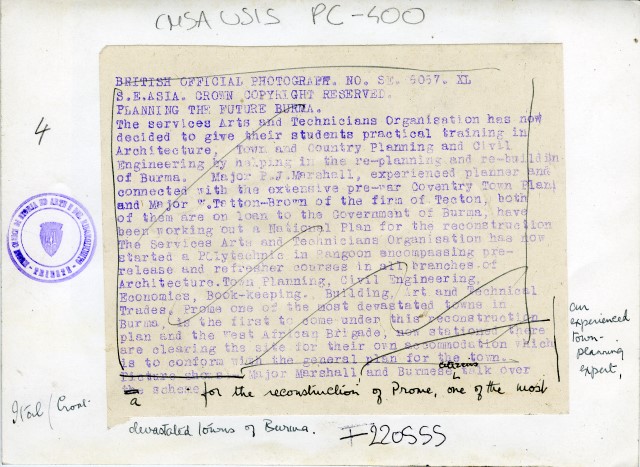 CMSA USIS PC-400
BRITISH OFFICIAL PHOTOGRAPH. NO. SE. 5057. XL
S.E.ASIA. CROWN COPYRIGHT RESERVED.
PLANNING THE FUTURE BURMA.
The services Arts and Technicians Organisation has now
decided to give their students practical training in
Architecture, Town and Country Planning and Civil
Engineering by helping in the re-planning and re-buildin
of Burma. Major P.J.Marshall, experienced planner and
connected with the extensive pre-war Coventry Town Plan,
and Major W.Tetton-Brown of the firm of Tecton, both
of them are on loan to the Government of Burma, have
been working out a National Plan for the reconstruction
The Services Arts and Technicians Organisation has now
started a Polytechnic in Rangoon encompassing pre-
release and refresher courses in all branches of
Architecture. Town Planning, Civil Engineering,
Economics, Book-keeping. Building, Art and Technical
Trades. Prome one of the most devastated towns in
Burma, is the first to come under this reconstruction
plan and the West African Brigade, now stationed there
are clearing the site for their own accommodation which
is to conform with the general plan for the town.
Picture shows: Major Marshall and Burmese citizens talk over
the scheme
a for the reconstruction of Prome, one of the most
devastated towns of Burma.
an
experienced
town-
planning
expert,
4
I-220555